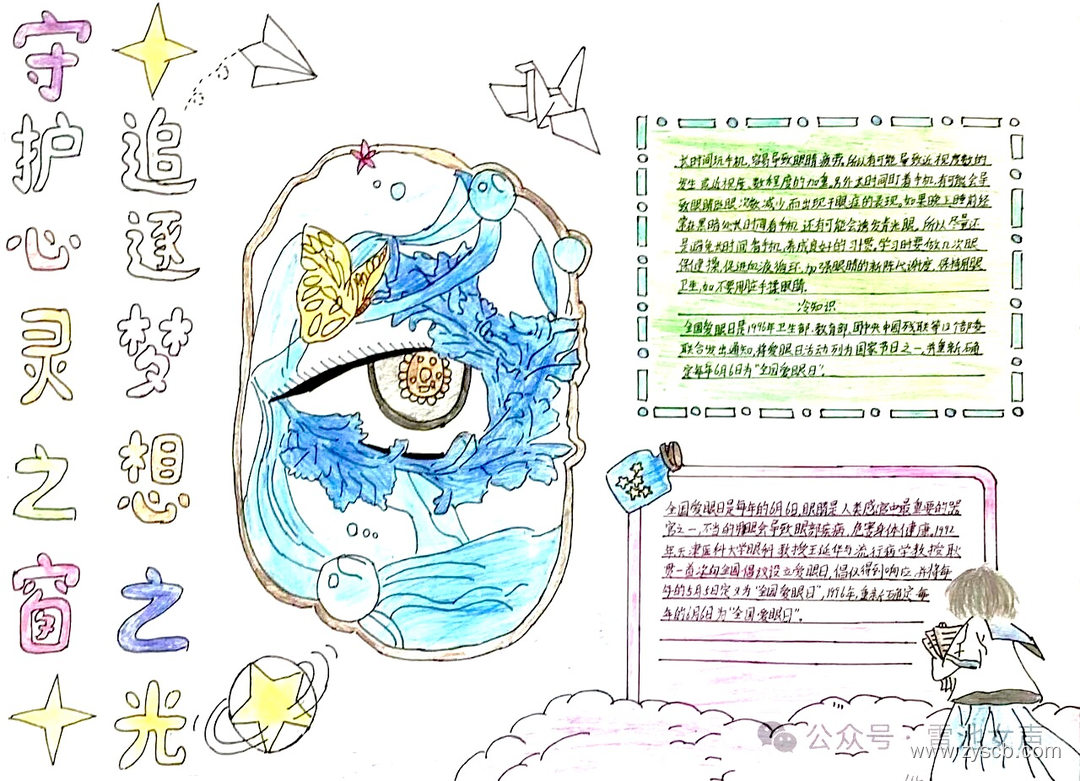 守护心灵之窗
追逐梦想之光
长时间玩手机,容易导致眼睛疲劳,所以有可能导致近视度数的
发生或近视度、数程度的加重,另外长时间盯着手机,有可能会导
致眼睛眨眼次数减少,而出现干眼症的表现。如果晚上睡前经
常在黑暗处长时间看手机,还有可能会诱发青光眼。所以尽量还
是避免长时间看手机,养成良好的习惯,学习时要做几次眼
保健操,促进血液循环,加强眼睛的新陈代谢度,保持用眼
卫生,如不要用脏手揉眼睛.
冷知识
全国爱眼日是1996年卫生部、教育部、团中央、中国残联等12个部委
联合发出通知,将爱眼日活动列为国家节日之一,并重新确
定每年6月6日为“全国爱眼日”.
全国爱眼日是每年的6月6日,眼睛是人类感官中最重要的器
官之一,不当的用眼会导致眼部疾病,危害身体健康。1992
年天津医科大学眼科教授王延华与流行病学教授耿
贯一首次向全国倡议设立爱眼日,倡仪得到响应,并将每
年的5月5日定义为“全国爱眼日”,1996年,重新确定每
年的6月6日为“全国爱眼日”。
公众号·雷池女声
www.rzyscb.com